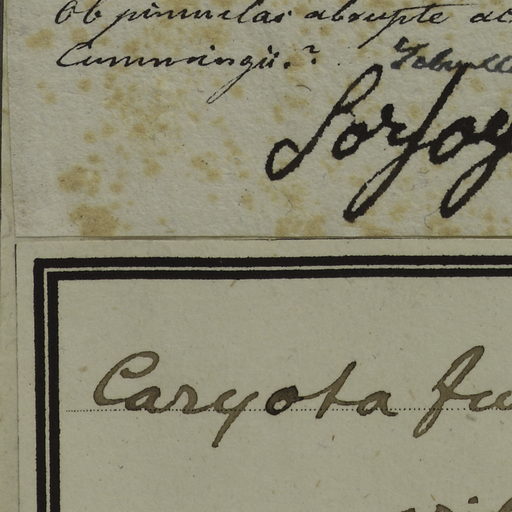 Ob pinnulas abrupte ac
Cummingii.?
Sorsog
Caryota fu